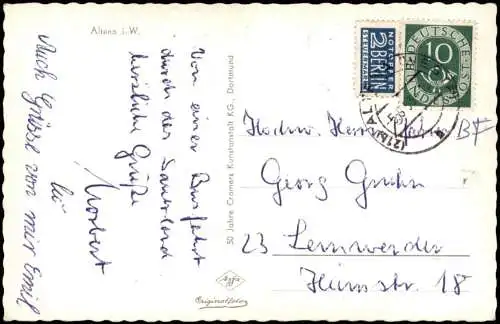 Altena i. W.
Von einer Busfahrt
durch das Sauerland
herzliche Grüße
Norbert
Auch Grüsse von mir Emil
50 Jahre Cramers Kunstanstalt KG., Dortmund
Agfa
Originalfoto
NOTOPFER
2 BERLIN
STEUERMARKE
DEUTSCHE BUNDESPOST
10
(21b) ALTENA
Hochw. Herrn
Georg
23 Lemwerder
18